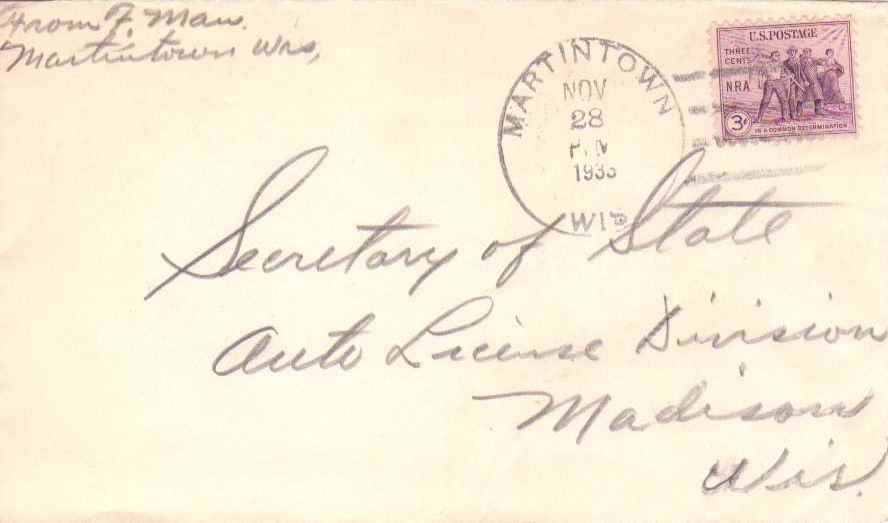 From F. Mau.
Martintown Wis,
MARTINTOWN
NOV
28
P.M
1933
WIS
U.S. POSTAGE
THREE
CENTS
NRA
3¢
IN A COMMON DETERMINATION
Secretary of State
Auto License Division
Madison
Wis.